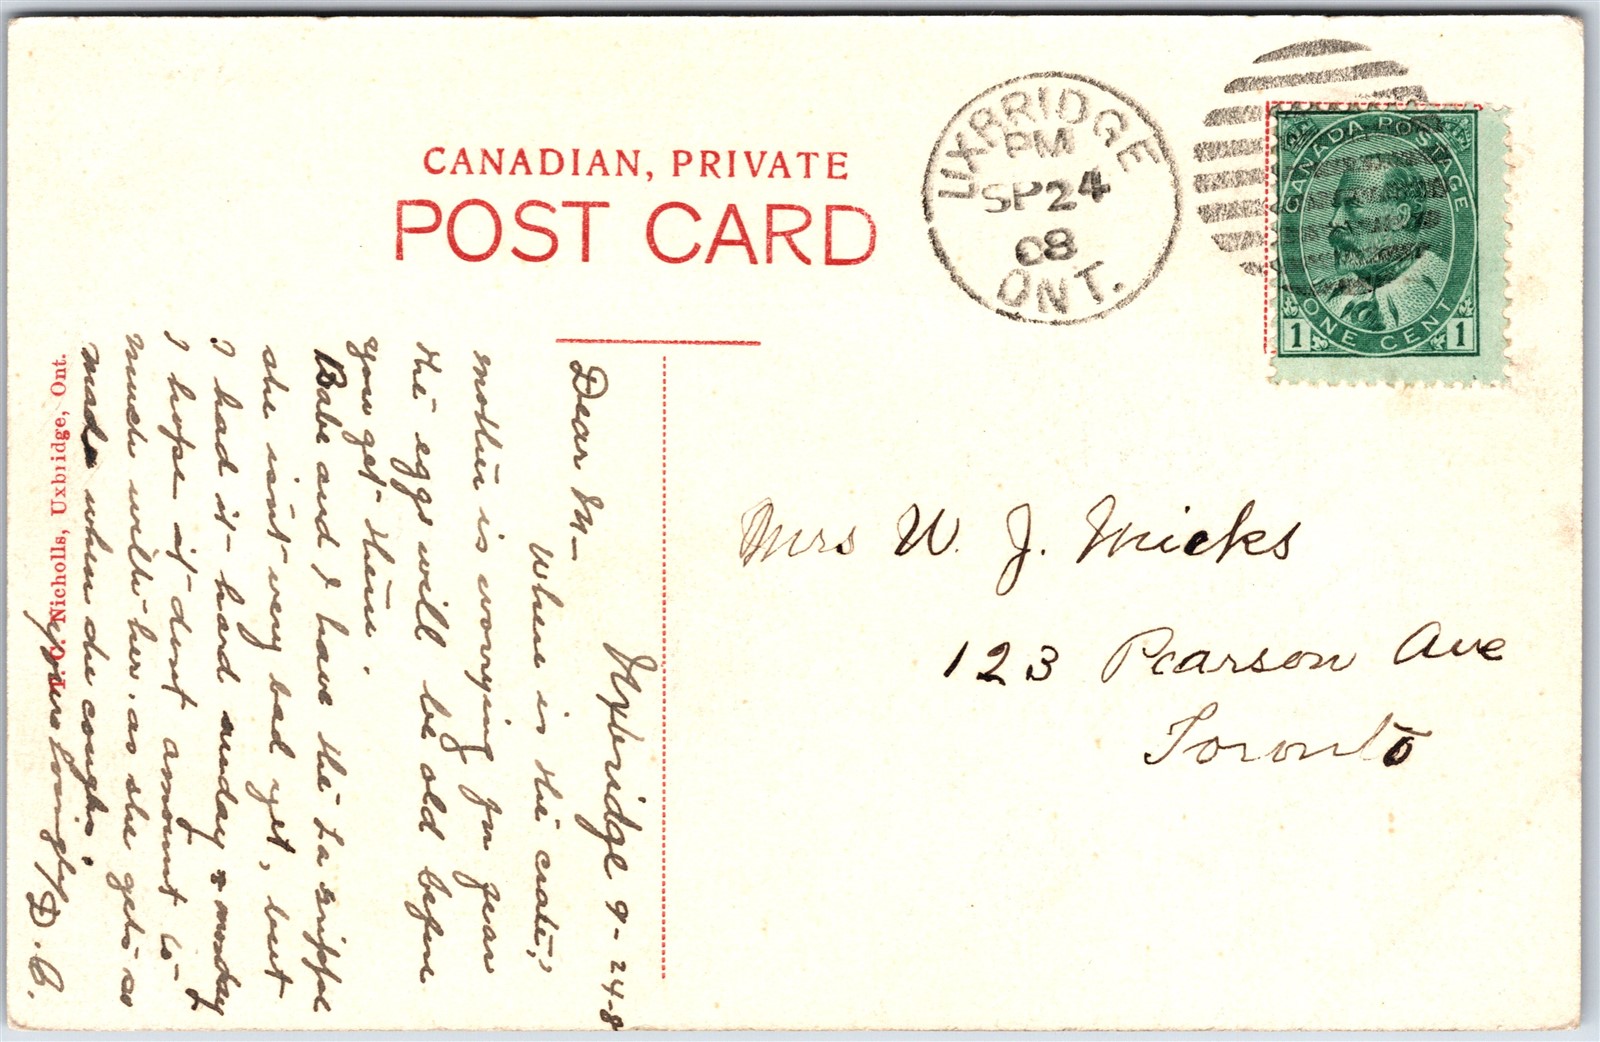 CANADIAN, PRIVATE
POST CARD
UXBRIDGE
PM
SP 24
08
ONT.
CANADA POSTAGE
1 ONE CENT 1
Mrs W. J. Micks
123 Pearson Ave
Toronto
Uxbridge 9-24-8
Dear M-
Where is the crate,?
mother is worrying for fear
the eggs will be old before
you get them.
Babe and I have the La Grippe
she isn't very bad yet, but
I had it hard sunday & monday
I hope it dont amount to
much with her. as she gets so
mad when she coughs.
yours lovingly D. C.
C. Nicholls, Uxbridge, Ont.